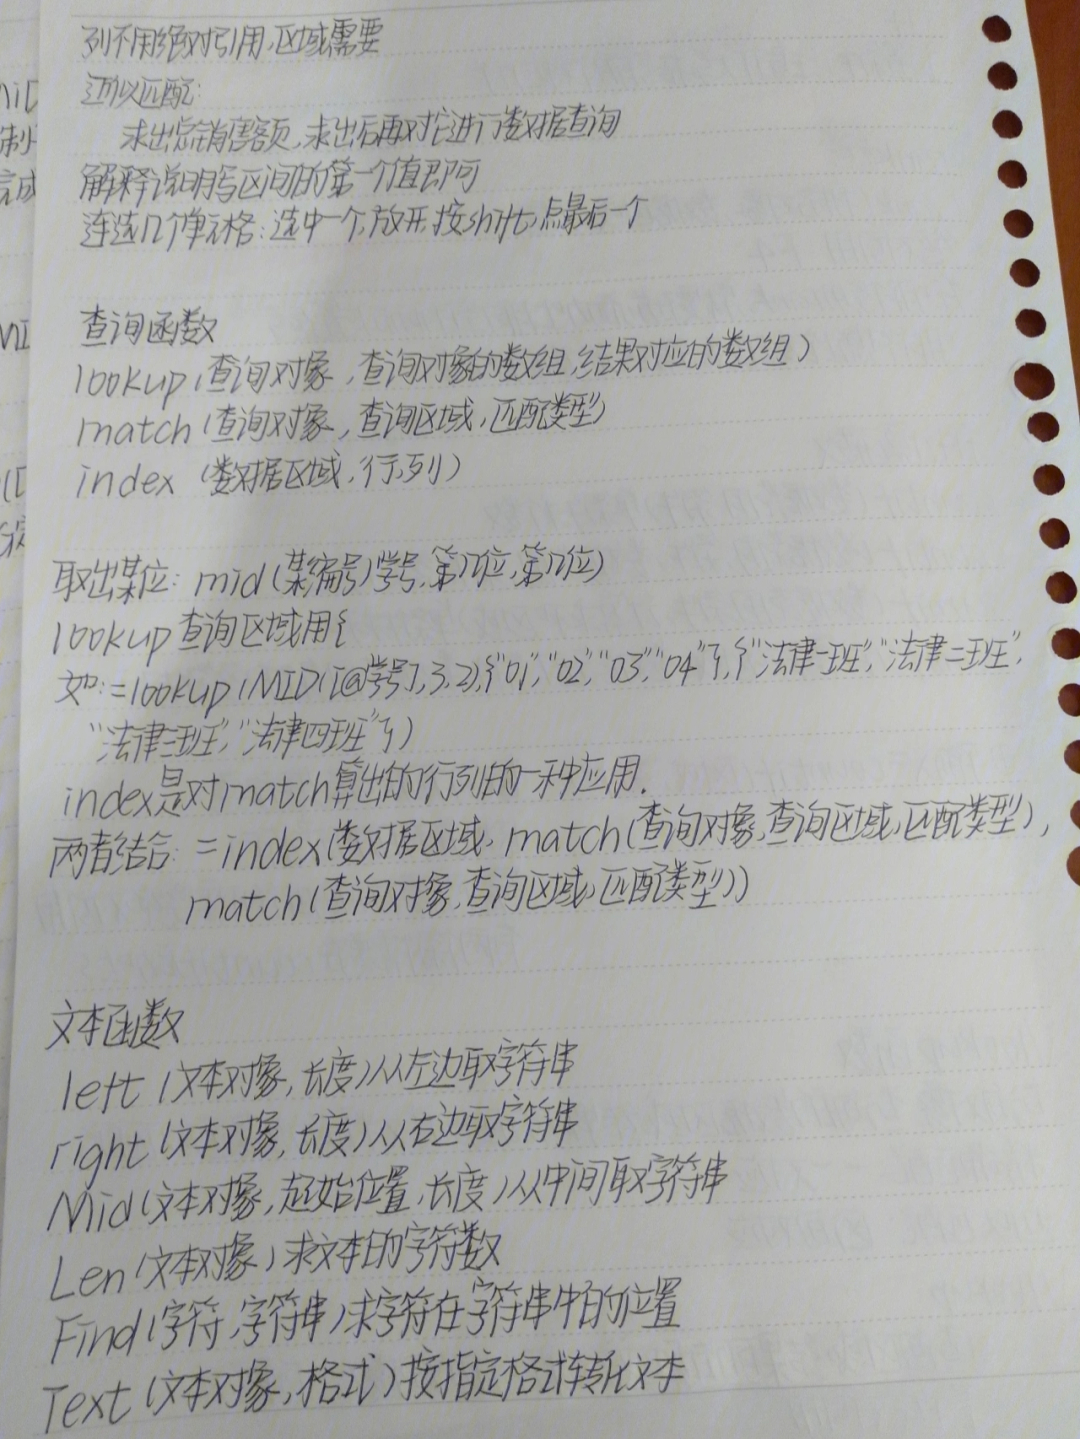 列不用绝对引用,区域需要
近似匹配:
求出总销售额,求出后再对它进行数据查询
解释说明写区间的第一个值即可
连选几个单元格:选中一个,放开,按shift,点最后一个
查询函数
lookup(查询对象,查询对象的数组,结果对应的数组)
match(查询对象,查询区域,匹配类型)
index (数据区域,行,列)
取出某位: mid(某编号)学号,第几位,第几位)
lookup查询区域用{
如:=lookup(MID([@学号],3,2),{"01","02","03","04"},{"法律一班","法律二班",
"法律三班","法律四班"})
index是对match算出的行列的一种应用.
两者结合: =index(数据区域,match(查询对象,查询区域,匹配类型),
match(查询对象,查询区域,匹配类型))
文本函数
left(文本对象,长度)从左边取字符串
right(文本对象,长度)从右边取字符串
Mid(文本对象,起始位置,长度)从中间取字符串
Len(文本对象)求文本的字符数
Find(字符,字符串)求字符在字符串中的位置
Text(文本对象,格式)按指定格式转化文本